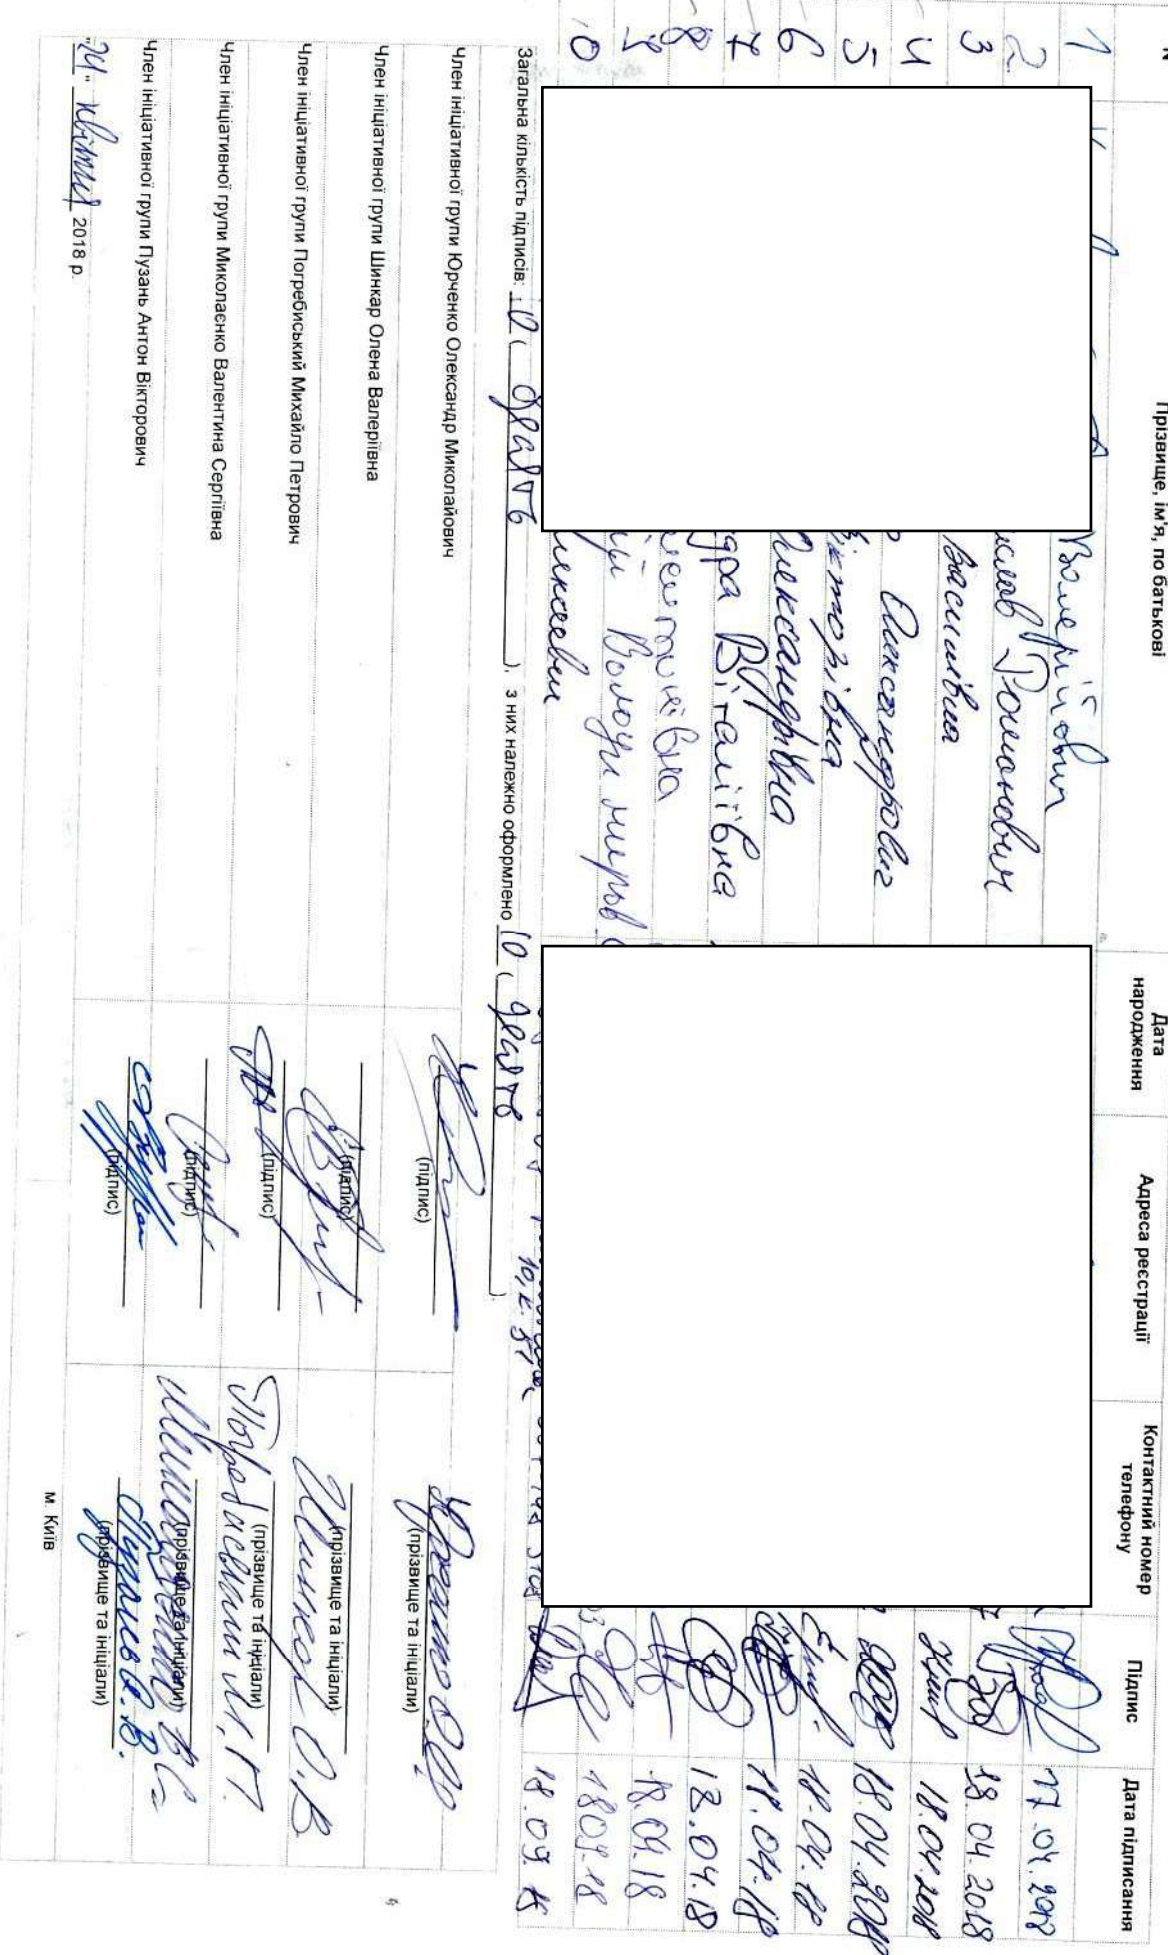 N
Прізвище, ім'я, по батькові
Дата народження
Адреса реєстрації
Контактний номер телефону
Підпис
Дата підписання
1 Валерійович 17.04.2018
2 Романович 18.04.2018
3 Василівна 18.04.2018
4 Александрович 18.04.2018
5 Вікторівна 18.04.18
6 Олександрівна 18.04.18
7 дра Віталіївна 18.04.18
8 18.04.18
9 Володимиров
10, к. 51
Загальна кількість підписів: 10 ( десять ), з них належно оформлено 10 ( десять ).
Член ініціативної групи Юрченко Олександр Миколайович (підпис) Юрченко О.М. (прізвище та ініціали)
Член ініціативної групи Шинкар Олена Валеріївна (підпис) Шинкар О.В (прізвище та ініціали)
Член ініціативної групи Погребиський Михайло Петрович (підпис) Погребиський М.П. (прізвище та ініціали)
Член ініціативної групи Миколаєнко Валентина Сергіївна (підпис) Миколаєнко В.С. (прізвище та ініціали)
Член ініціативної групи Пузань Антон Вікторович (підпис) (прізвище та ініціали)
"24" квітня 2018 р.
м. Київ